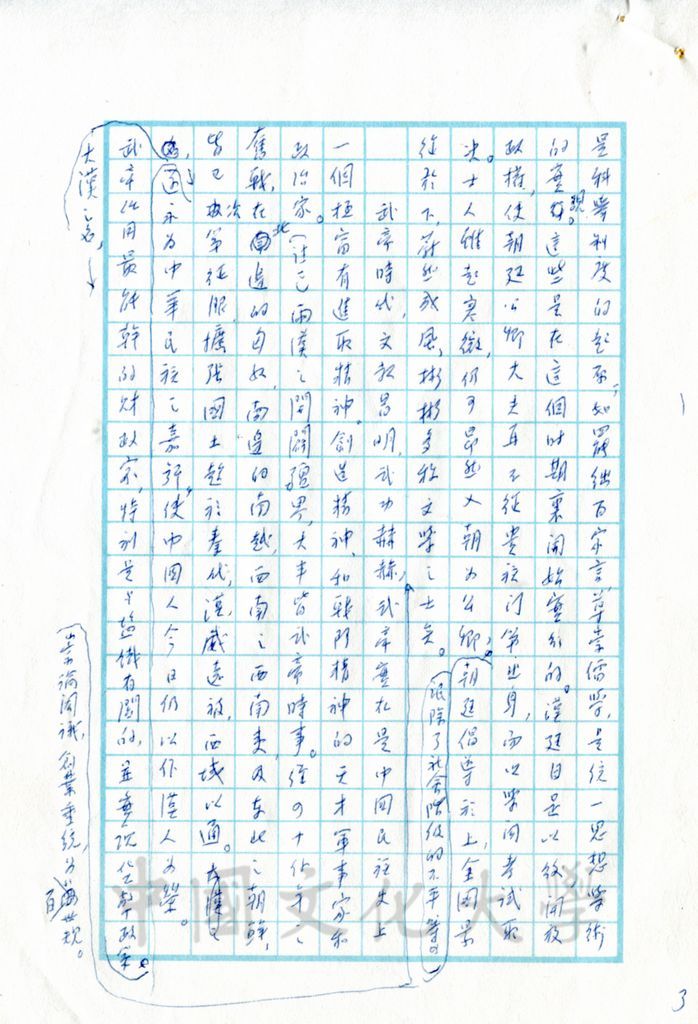 是科學制度的起源,如羅絀百家言尊崇儒學,是統一思想學術
的實現,這些是在這個時期裏開始實行的。漢廷自是以後開放
政權,使朝廷公卿大夫再不從貴族門第出身,而以學問考試取
決。士人雖起寒微,仍可昂然入朝為公卿,朝廷倡導於上,全國景
從於下,蔚然成風,彬彬多雅文學之士矣。
泯除了社會階級的不平等。
武帝時代,文教昌明,武功赫赫,武帝實在是中國民族史上
一個極富有進取精神,創造精神,和戰鬥精神的天才軍事家和
政治家。(註二)兩漢之開闢疆界,大事皆武帝時事。經四十餘年之
奮戰,在北邊的匈奴,南邊的南越,西南之西南夷,及東北之朝鮮,
皆已次第征服,擴張國土超於秦代,漢威遠被,西域以通。大漢之
永為中華民族之嘉許,使中國人今日仍以作漢人為榮。
武帝任用最能幹的財政家,特別是
大漢之名,
崇論閎議,創業垂統,為百世規。
中國文化大學
3